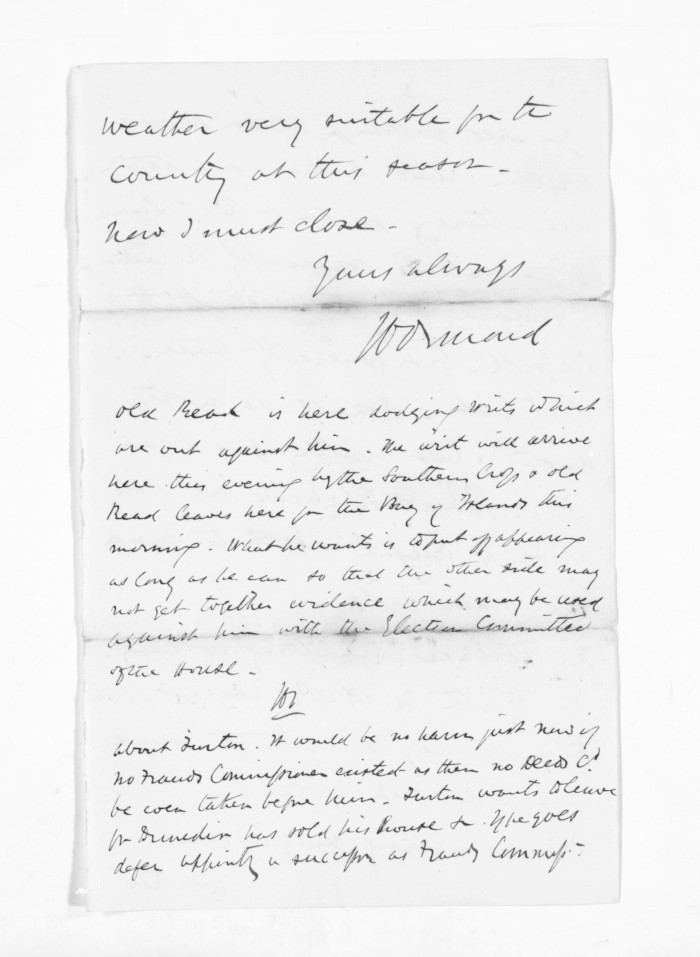 weather very suitable for the
country at this season -
Now I must close -
Yours always
JD Ormond
Old Read is here dodging writs which
are out against him. The writ will arrive
here this evening by the Southern Cross & old
Read leaves here for the Bay of Islands this
morning. What he wants is to put off appearing
as long as he can so that the other side may
not get together evidence which may be used
against him with the Election Committee
of the House -
JDO
about Turton. It would be no harm just now if
no Frauds Commissioner existed as then no Deeds Cd
be even taken before him - Turton wants to leave
for Dunedin has sold his house &c.
defer a successor as Frauds Commissr.